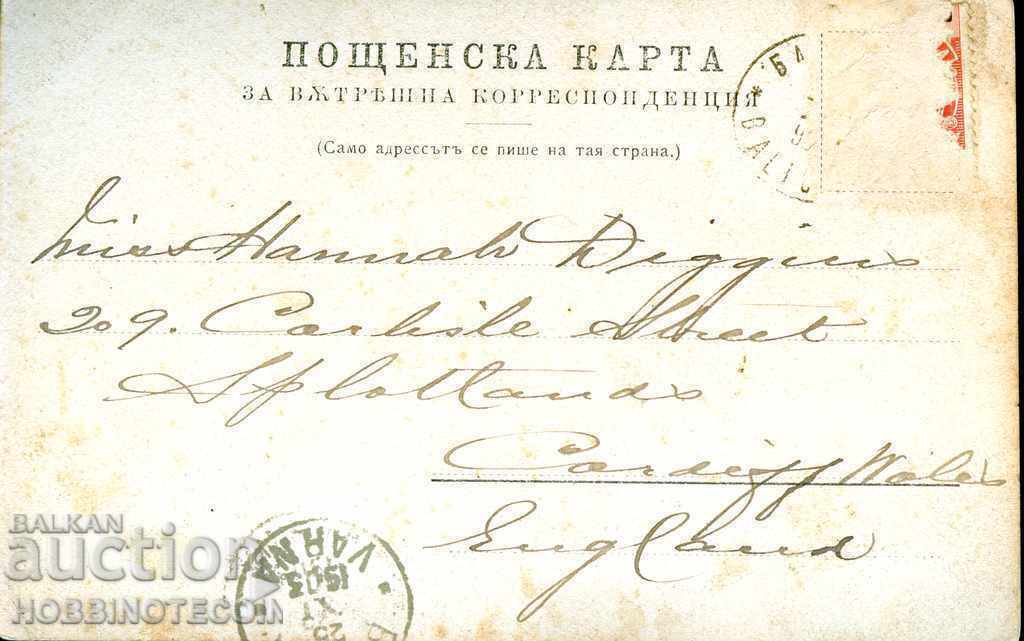 ПОЩЕНСКА КАРТА
ЗА ВѪТРѢШНА КОРРЕСПОНДЕНЦИЯ
(Само адрессътъ се пише на тая страна.)
Miss Hannah Diggins
209. Carlisle Street
Splotlands
Cardiff Wales
England
VARNA
1903
XI
BALKAN
auction
HOBBINOTECOM